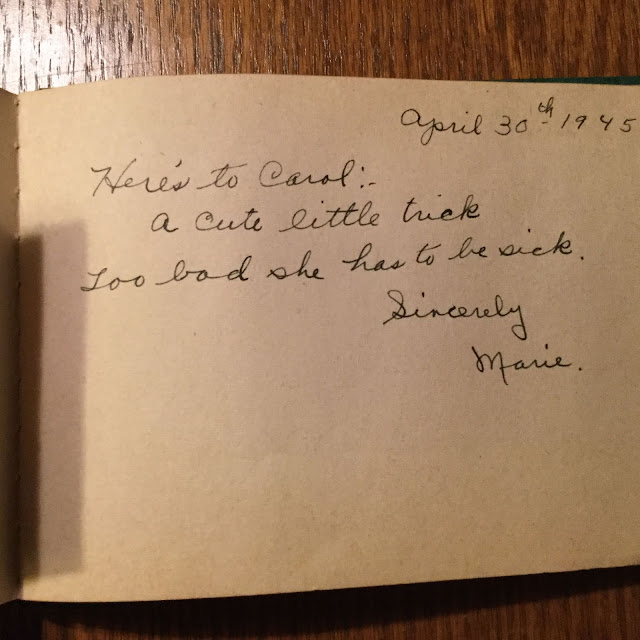 April 30th 1945
Here's to Carol:-
A cute little trick
Too bad she has to be sick.
Sincerely
Marie.